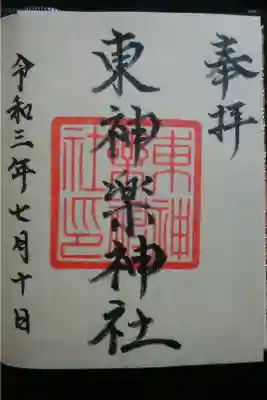 奉拝
東神楽神社
東神楽神社印
令和三年七月十日